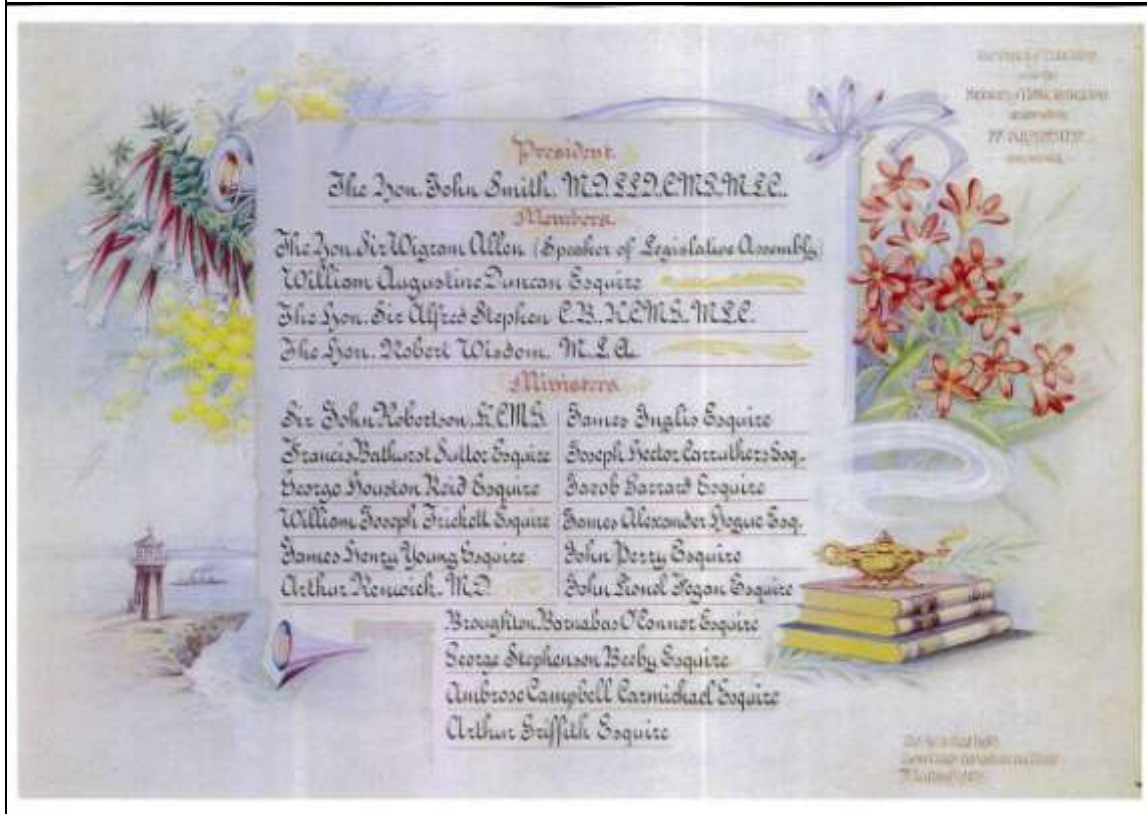 President.
The Hon. John Smith. M.D. LL.D. C.M.G. M.L.C.
Members.
The Hon. Sir Wigram Allen (Speaker of Legislative Assembly)
William Augustine Duncan Esquire
The Hon. Sir Alfred Stephen C.B., K.C.M.G., M.L.C.
The Hon. Robert Wisdom. M.L.A.
Ministers
Sir John Robertson. K.C.M.G.
Francis Bathurst Suttor Esquire
George Houston Reid Esquire
William Joseph Trickett Esquire
James Henry Young Esquire
Arthur Renwick. M.D.
James Inglis Esquire
Joseph Hector Carruthers Esq.
Jacob Garrard Esquire
James Alexander Hogue Esq.
John Perry Esquire
John Lionel Fegan Esquire
Broughton Barnabas O'Connor Esquire
George Stephenson Beeby Esquire
Ambrose Campbell Carmichael Esquire
Arthur Griffith Esquire